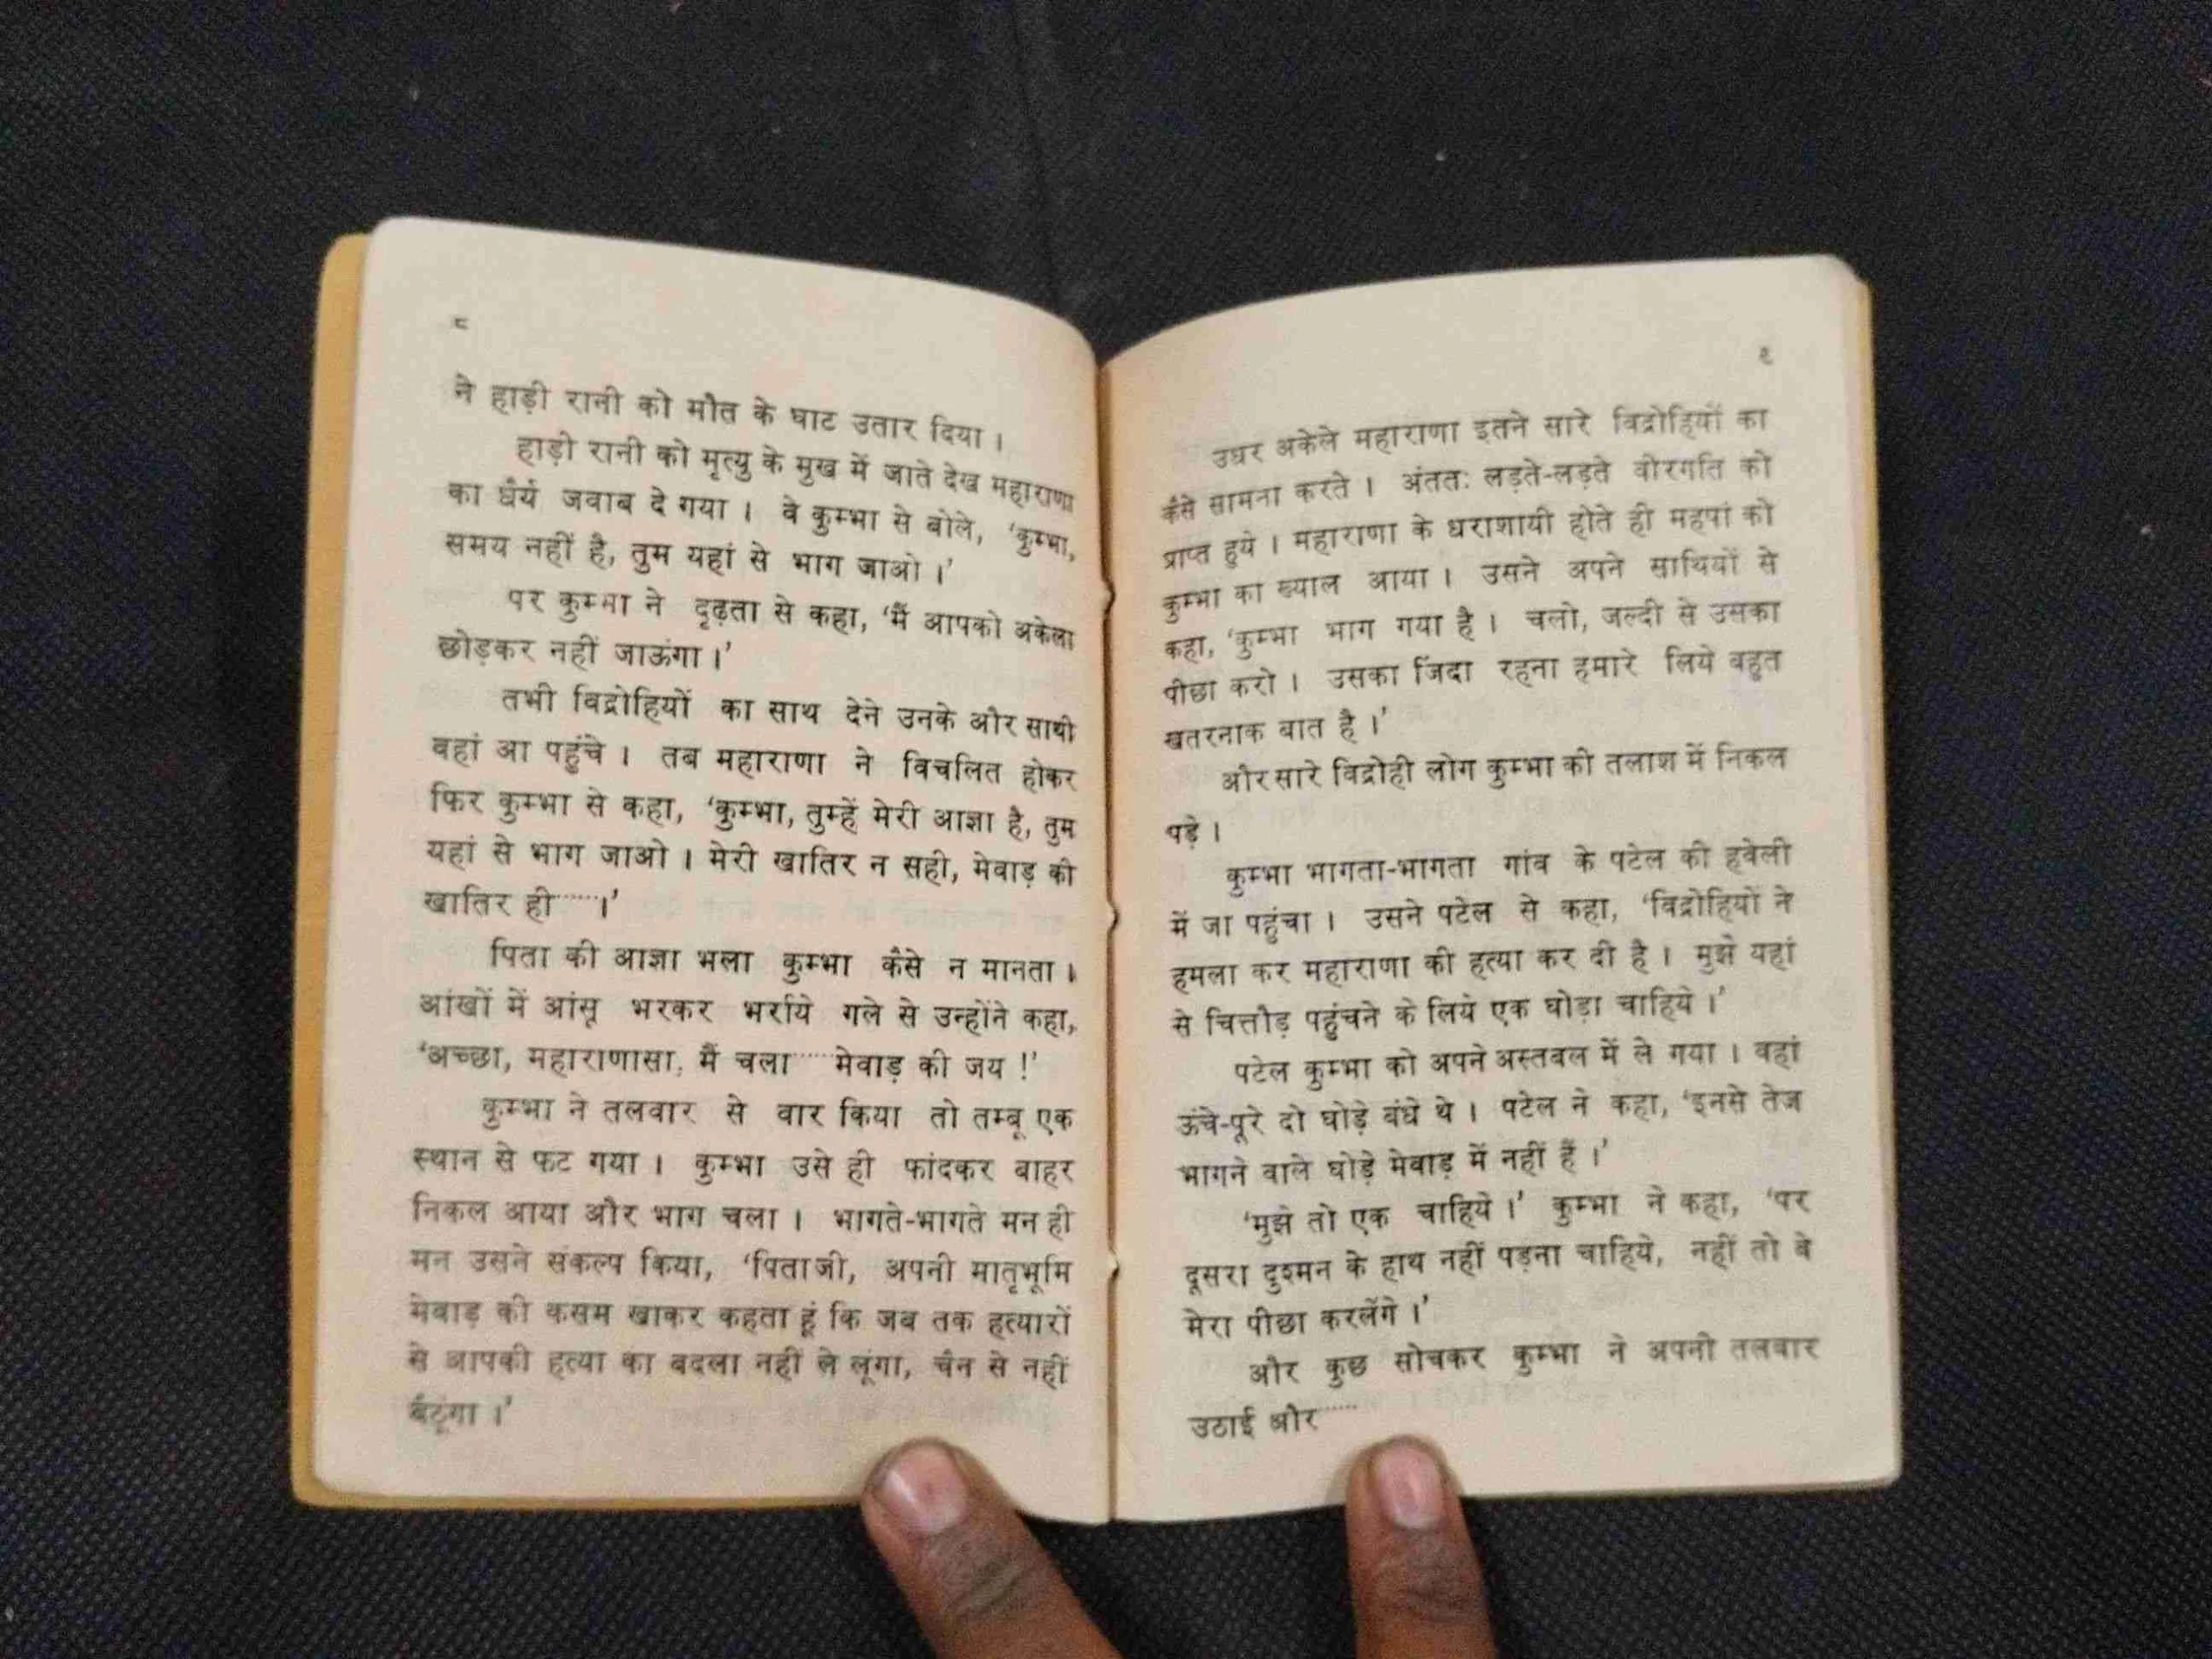 ८
ने हाड़ी रानी को मौत के घाट उतार दिया ।
हाड़ी रानी को मृत्यु के मुख में जाते देख महाराणा
का धैर्य जवाब दे गया । वे कुम्भा से बोले, ‘कुम्भा,
समय नहीं है, तुम यहां से भाग जाओ ।’
पर कुम्भा ने दृढ़ता से कहा, ‘मैं आपको अकेला
छोड़कर नहीं जाऊंगा ।’
तभी विद्रोहियों का साथ देने उनके और साथी
वहां आ पहुंचे । तब महाराणा ने विचलित होकर
फिर कुम्भा से कहा, ‘कुम्भा, तुम्हें मेरी आज्ञा है, तुम
यहां से भाग जाओ । मेरी खातिर न सही, मेवाड़ की
खातिर ही……।’
पिता की आज्ञा भला कुम्भा कैसे न मानता ।
आंखों में आंसू भरकर भर्राये गले से उन्होंने कहा,
‘अच्छा, महाराणासा, मैं चला……मेवाड़ की जय !’
कुम्भा ने तलवार से वार किया तो तम्बू एक
स्थान से फट गया । कुम्भा उसे ही फांदकर बाहर
निकल आया और भाग चला । भागते-भागते मन ही
मन उसने संकल्प किया, ‘पिताजी, अपनी मातृभूमि
मेवाड़ की कसम खाकर कहता हूं कि जब तक हत्यारों
से आपकी हत्या का बदला नहीं ले लूंगा, चैन से नहीं
बैठूंगा ।’
९
उधर अकेले महाराणा इतने सारे विद्रोहियों का
कैसे सामना करते । अंततः लड़ते-लड़ते वीरगति को
प्राप्त हुये । महाराणा के धराशायी होते ही महपां को
कुम्भा का ख्याल आया । उसने अपने साथियों से
कहा, ‘कुम्भा भाग गया है । चलो, जल्दी से उसका
पीछा करो । उसका जिंदा रहना हमारे लिये बहुत
खतरनाक बात है ।’
और सारे विद्रोही लोग कुम्भा की तलाश में निकल
पड़े ।
कुम्भा भागता-भागता गांव के पटेल की हवेली
में जा पहुंचा । उसने पटेल से कहा, ‘विद्रोहियों ने
हमला कर महाराणा की हत्या कर दी है । मुझे यहां
से चित्तौड़ पहुंचने के लिये एक घोड़ा चाहिये ।’
पटेल कुम्भा को अपने अस्तबल में ले गया । वहां
ऊंचे-पूरे दो घोड़े बंधे थे । पटेल ने कहा, ‘इनसे तेज
भागने वाले घोड़े मेवाड़ में नहीं हैं ।’
‘मुझे तो एक चाहिये ।’ कुम्भा ने कहा, ‘पर
दूसरा दुश्मन के हाथ नहीं पड़ना चाहिये, नहीं तो वे
मेरा पीछा करलेंगे ।’
और कुछ सोचकर कुम्भा ने अपनी तलवार
उठाई और……